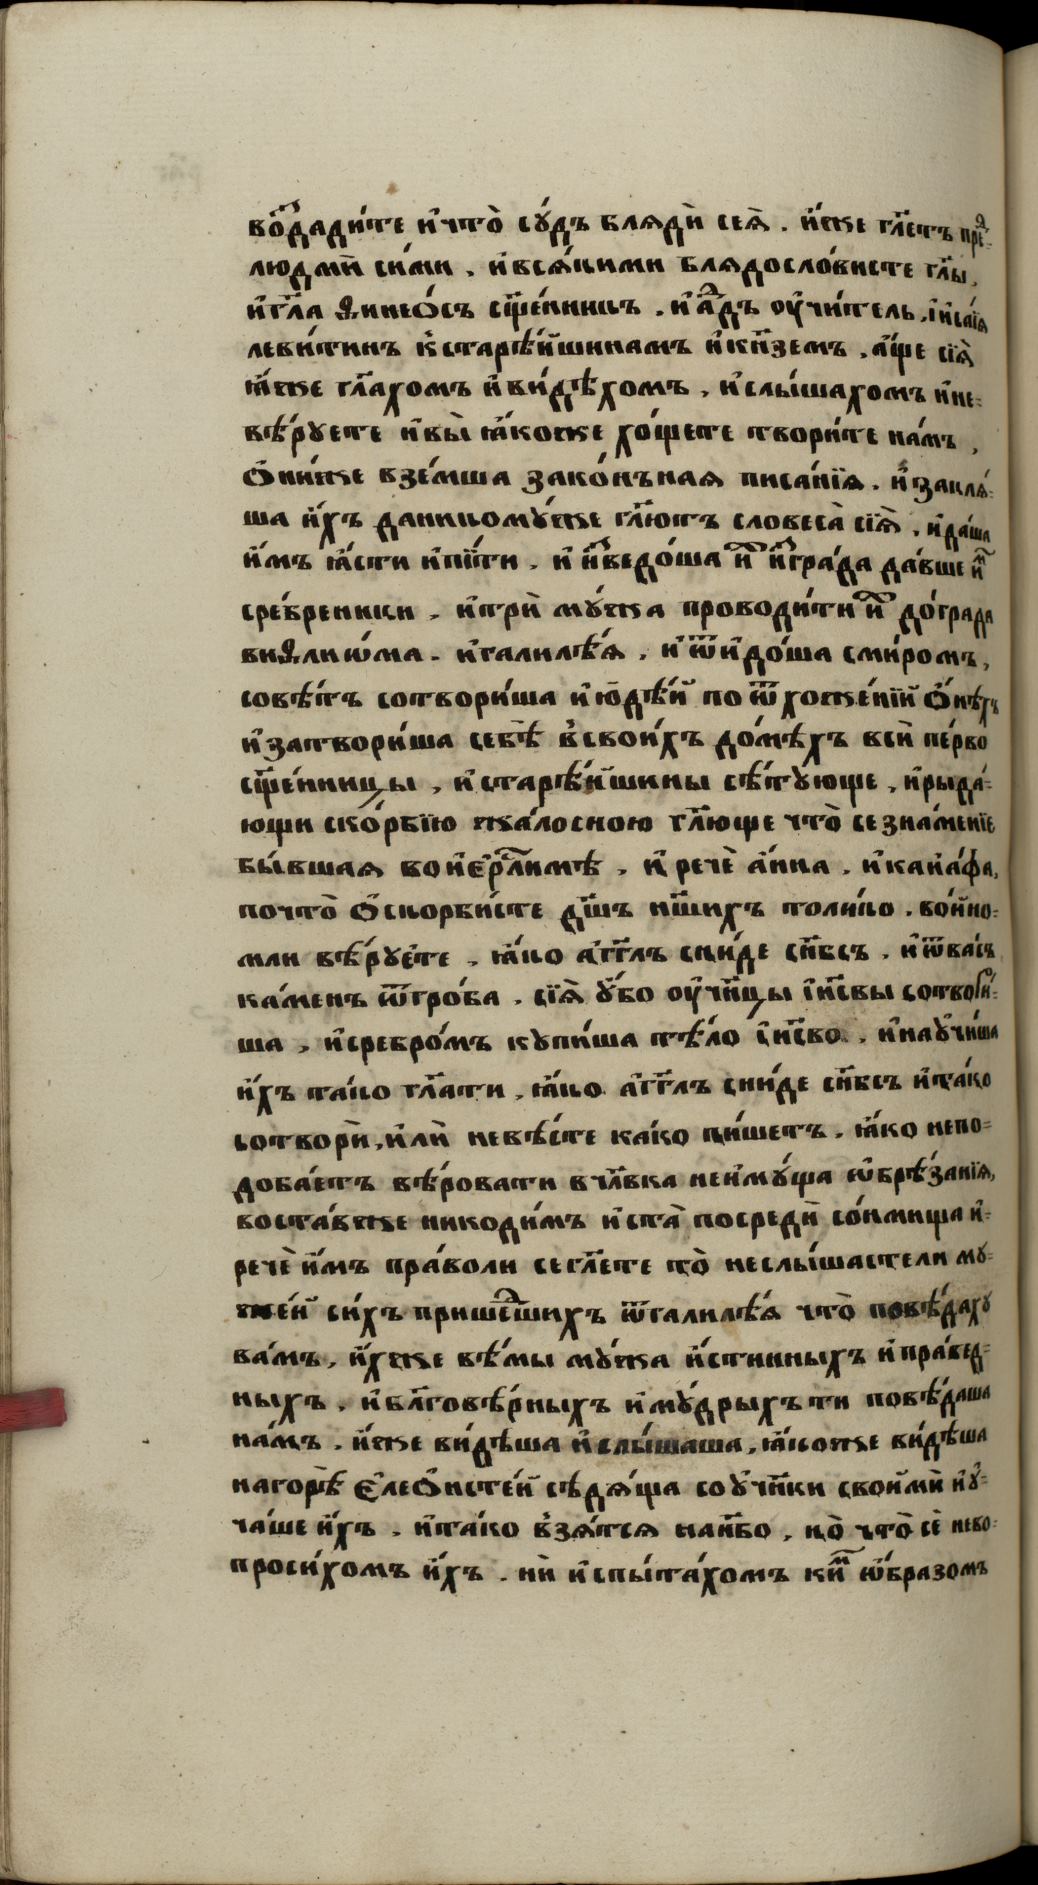 во́здади́те и҆что̀ сꙋ́дъ блѧди̑ сеѧ̀ . и҆́же гл҃етъ преⷣ-
людми̑ си́ми . и҆всѧ́кими блѧдосло́висте гл҃ы ,
и҆гл҃а ѳинеѻ́съ сщ҃е́нникъ . и҆ а҆ⷣдъ оу҆чи́тель . і҆и҆са́їѧ
леви́тинъ к̾старѣ́йшинамъ и҆кн҃земъ . а҆́ще сїѧ̀
ꙗ҆́же гл҃ахомъ и҆ви́дѣхомъ , и҆слы́шахомъ и҆не-
вѣ́рꙋете и҆вы̀ ꙗ҆́коже хо́щете твори́те на́мъ ,
ѻ҆ни́же взе́мша зако́нънаѧ писа́нїѧ . и҆заклѧ́-
ша и҆́хъ даникомꙋ́же гл҃ютъ словеса̀ сїѧ̀ , и҆да́ша
и҆́мъ ꙗ҆́сти и҆пи́ти . и҆ и҆зⷥведо́ша и҆ⷯ и҆зⷥгра́да да́вше и҆ⷨ
сре́бреники . и҆три̑ мꙋ́жа проводи́ти и҆ⷯ до́града
виѳлиѡ́ма . и҆галилѣ́ѧ , и҆ ѿи҆до́ша сми́ромъ ,
совѣ́тъ сотвори́ша и҆ю҆дѣ́й по ѿхоже́нїй ѻ҆́нѣхъ
и҆затвори́ша себѣ̀ в̾свои́хъ до́мѣхъ вси̑ пе́рво
сщ҃е́нницы , и҆старѣ́йшины сѣ́тꙋюще , и҆рыда́-
ющи ско́рбїю жа́лосною гл҃юще что̀ се зна́менїе
бы́вшаѧ во и҆ерⷭ҇ли́мѣ . и҆ речѐ а҆́нна . и҆каиа́фа ,
почто̀ ѻ҆скорби́сте дш҃ъ нш҃ихъ толико . во́ино-
мли вѣ́рꙋе́те . ꙗ҆́ко а҆́гг҃лъ сни́де сн҃бсъ . и҆ ѿва́съ
ка́менъ ѿгро́ба . сїѧ̀ ᲂу҆́бо оу҆чн҃цы і҆и҃свы сотвори́-
ша , и҆сребро́мъ кꙋпи́ша тѣ́ло і҆и҃сво . и҆наꙋчи́ша
и҆́хъ та́ко гл҃ати . ꙗ҆́ко а҆́гг҃лъ сни́де сн҃бсъ и҆та́ко
сотвори̑ , и҆ли̑ невѣ́сте ка́ко пи́шетъ . ꙗ҆́ко непо-
доба́етъ вѣ́ровати в чл҃вка неи҆мꙋ́ща ѡ҆брѣ́занїѧ ,
воста́вже никоди́мъ и҆ста̀ посреди̑ со́нмища и҆-
речѐ и҆́мъ пра́воли сегл҃ете то̀ неслы́шастели мꙋ-
же́й си́хъ прише́ⷣшихъ ѿгалилѣ́ѧ что̀ повѣ́дахꙋ
ва́мъ , и҆́хже вѣ́мы мꙋ́жа и҆́стинныхъ и҆пра́вед-
ныхъ . и҆бл҃говѣ́рныхъ и҆мꙋ́дрыхъ ти повѣ́даша
на́мъ . и҆́же ви́дѣша и҆слы́шаша , ꙗ҆́коже ви́дѣша
нагорѣ̀ є҆леѻ́нисте́й сѣдѧ́ща соꙋчн҃ки свои́ми и҆ꙋ-
ча́ше и҆́хъ . и҆та́ко в̾зѧ́тсѧ нан҃бо , но̀ что̀ сѐ нево-
проси́хомъ и҆́хъ . ни̑ и҆спыта́хомъ ки́ⷨ ѡ҆́бразомъ